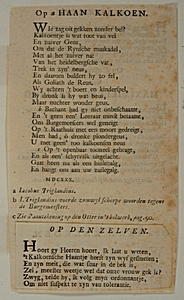 Op a HAAN KALKOEN.
Wie zag oit gekken zonder bel?
Kalkoentje is wat root van vel
En zuiver Gent,
Om dat de Rynsche muskadel,
Met al het zuiver nat
Van het heidelbergsche vat,
Trek in zyn' neus,
En daarom buldert hy zo fel,
Als Goliath de Reus,
Wy achten 't boert en kinderspel,
By dronk is hy wat beus,
Maar nuchter wonder geus,
Bachant had gy niet onbeschaamt,
En 't geen een' Leeraar minst betaamt,
Ons Burgemeesters wel gemoet
Op 't Raathuis met een moort gedreigt,
Men had, ô dronke plondergeus,
U met geen' roo kalkoenschen neus
c Op 't openbaar tooneel gebragt,
En als een' schryvalk uitgelacht.
Gaat heen nu als een huilebalg,
En hangt ons aan uw eige galg.
MDCXXX.
a Jacobus Triglandius.
b J. Triglandius voerde zommyl scherpe woorden tegens de Burgemeesters.
c Zie d'aantekening op den Otter in 't bolwerk, pag. 90.
OP DEN ZELVEN.
Hoort gy Heeren hoort, ik laat u weten,
't Kalkoensche Haantje heeft zyn wyf gesmeten;
En zyn meit, die wat stuur in de bek is,
Zei, moeder weetje wel dat onze vrouw gek is?
Zwyg, zeide hy, ik volg myn ordonnantie,
Om niet suspekt te zyn van tolerantie.